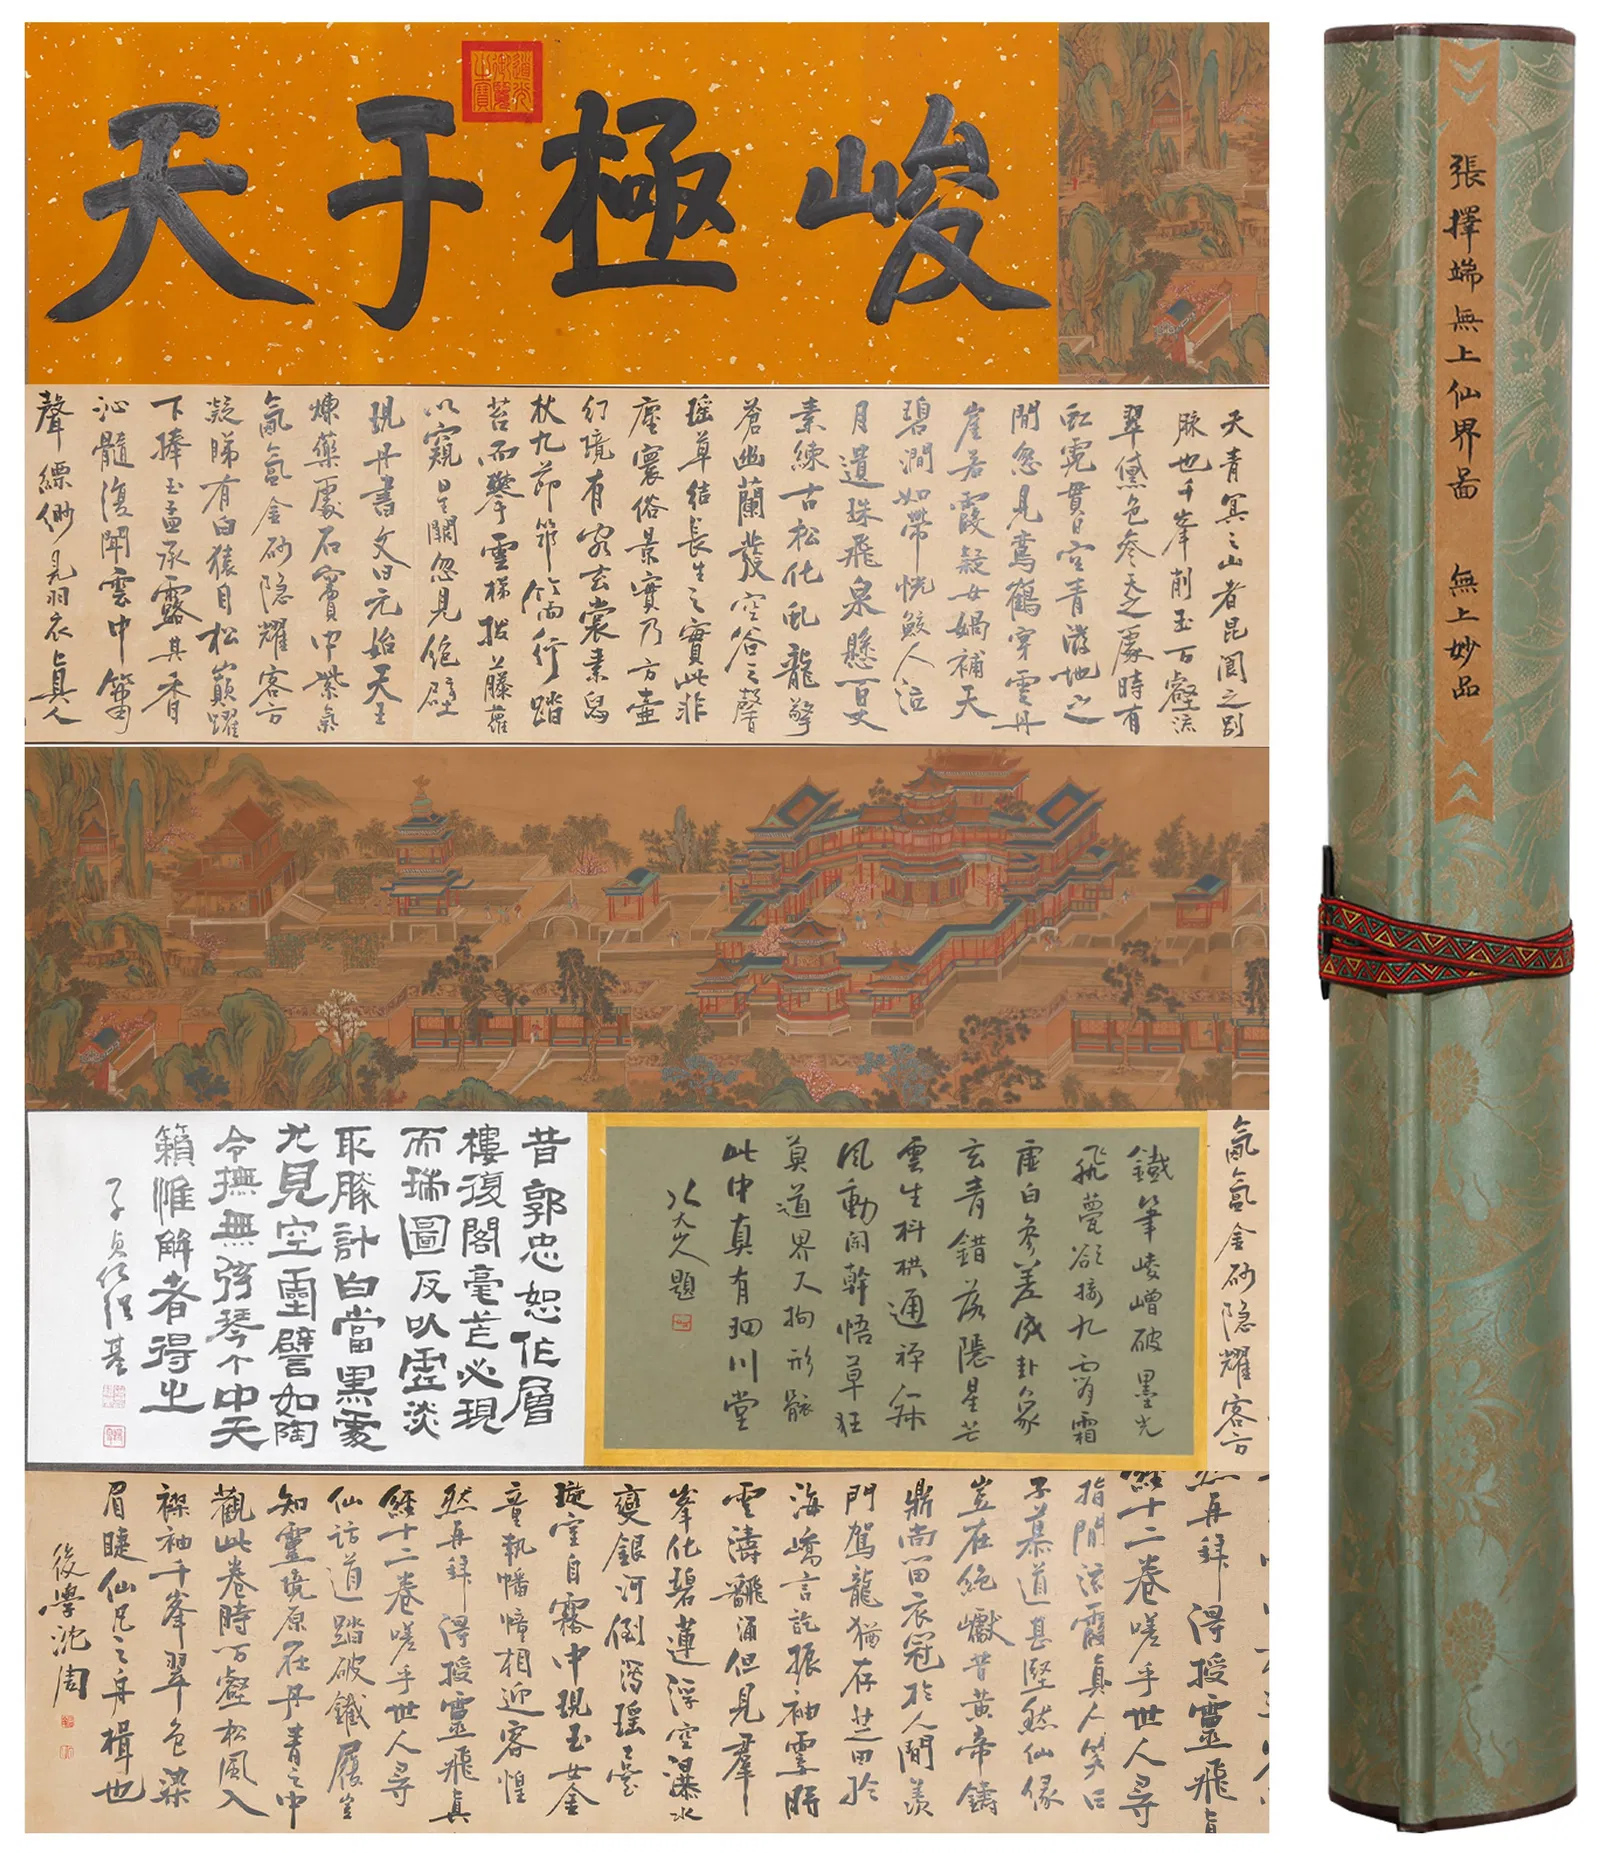 峻極于天
道光御覽之寶
張擇端無上仙界圖 無上妙品
天青冥之山者昆閬之別
脉也千峯削玉百壑流
翠黛色参天之處時有
虹霓貫日空青滋地之
閒忽見鸞鶴穿雲丹
崖若霞疑女媧補天
碧澗如帶恍鮫人泣
月遺珠飛泉懸百丈
素練古松化虬龍擎
蒼幽蘭發空谷之馨
瑶草結長生之實此非
塵寰俗景實乃方壺
幻境有客玄裳素舄
杖九節筇竹而行踏
苔而攀雲梯捫藤蘿
以窺星闕忽見絶壁
現丹書文曰元始天王
煉藥處石竇中紫氣
氤氲金砂隐耀客方
凝睇有白猿自松巔躍
下捧玉盂承露其香
沁髓復聞雲中簫
聲縹緲見羽衣真人
氤氲金砂隐耀客方
鐵筆崚嶒破墨光
飛甍欲接九霄霜
虚白参差成卦象
玄青錯落隱星芒
雲生枓栱通禅寐
風動闌幹悟草狂
莫道界尺拘形骸
此中真有輞川堂
八大山人題
昔郭忠恕作層
樓復閣毫芒必現
而瑞圖反以虚淡
取勝計白當黑處
尤見空靈譬如陶
令撫無弦琴个中天
籟惟解者得之
子貞何紹基
然再拜得授靈飛真
經十二卷嗟乎世人寻
指閒流霞真人笑曰
子慕道甚堅然仙缘
豈在絶巘昔黄帝鑄
鼎尚留衣冠於人間羨
門駕龍猶存芝田於
海嶠言訖振袖霎時
雲濤飜涌但見羣
峯化碧蓮浮空瀑水
變銀河倒瀉瑶臺
璇室自霧中現玉女金
童執幡幢相迎客惶
然再拜得授靈飛真
經十二卷嗟乎世人寻
仙訪道踏破鐵履豈
知靈境原在丹青之中
觀此卷時百壑松風入
襟袖千峯翠色染
眉睫仙凡之舟楫也
後學沈周